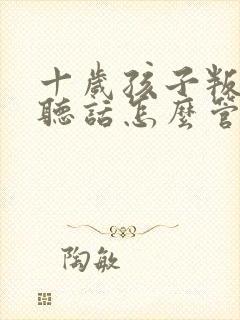 十歲孩子叛
聽話怎麼管
陶敏